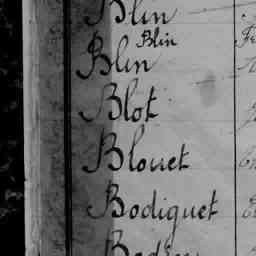 Blin
Blin
Blin
Blot
Blouet
Bodiquet